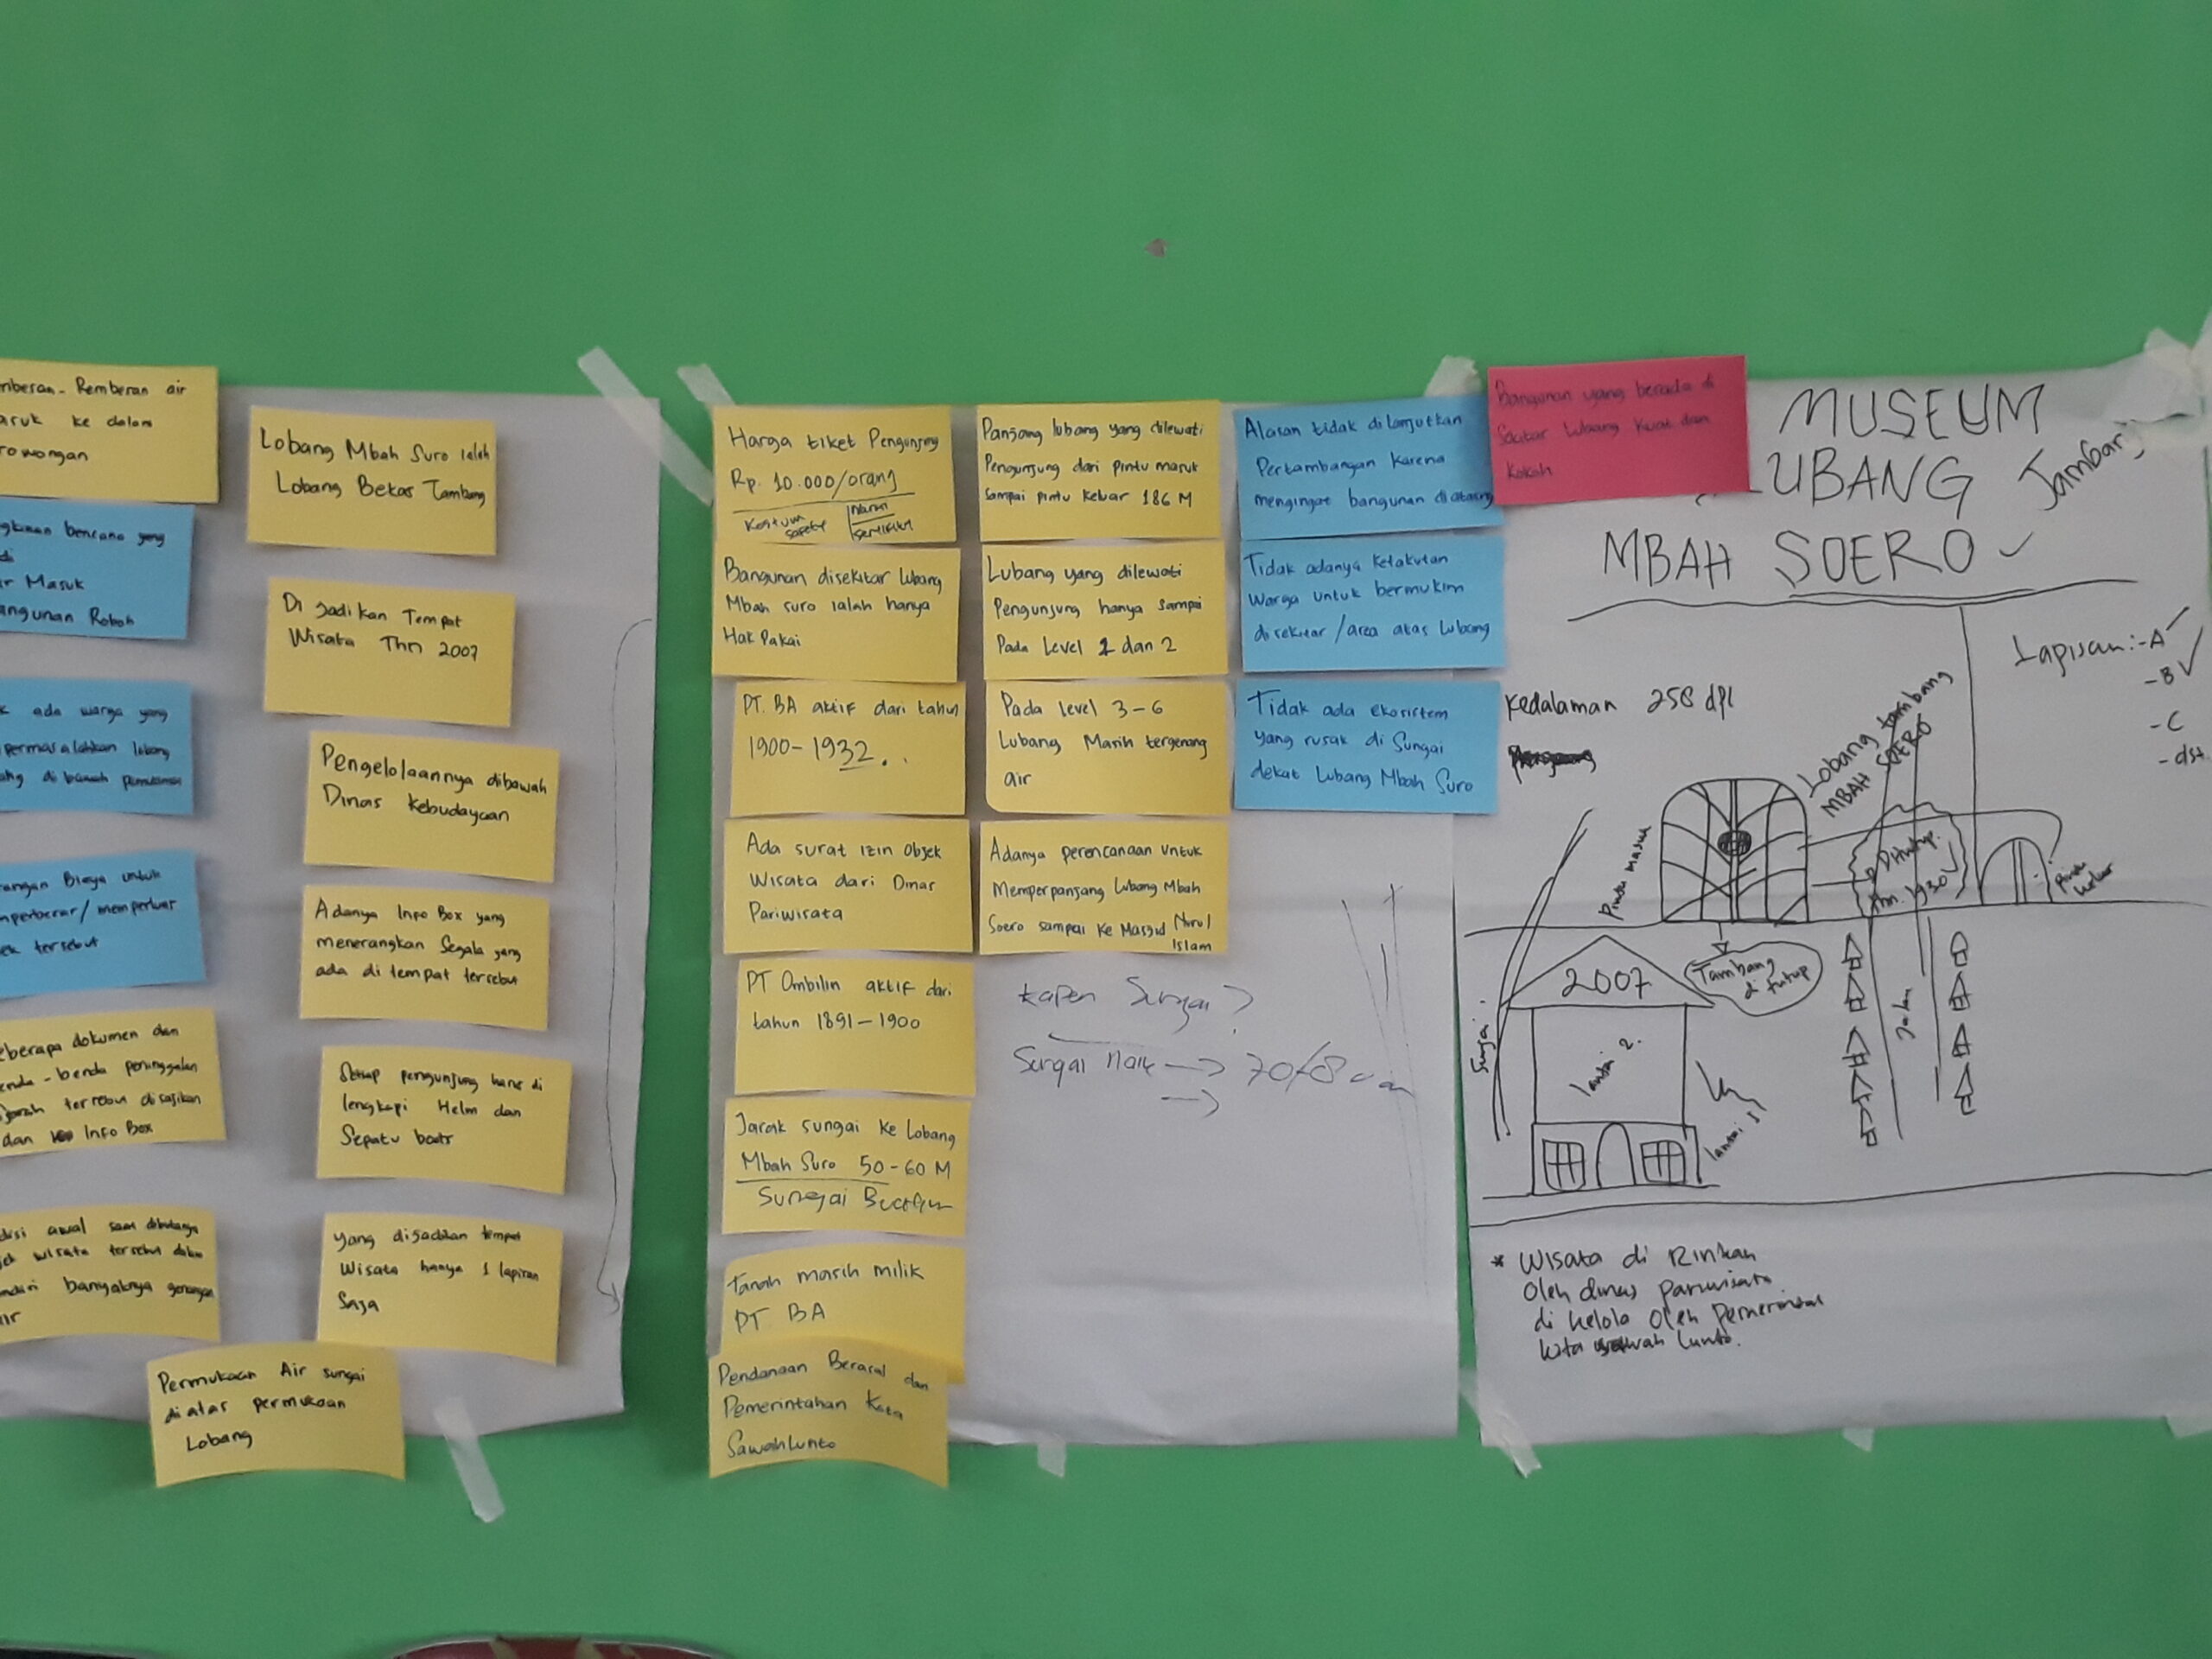 Remberan air
ke dalam
Lobang Mbah Suro ialah
Lobang Bekas Tambang
bencana yang
Masuk
Roboh
Di Jadikan Tempat
Wisata Thn 2007
ada warga yang
lobang
Pengelolaannya dibawah
Dinas Kebudayaan
Biaya untuk
tersebut
Adanya Info Box yang
menerangkan Segala yang
ada di tempat tersebut
dokumen dan
benda peninggalan
tersebut disajikan
dan Info Box
Setiap pengunjung harus di
lengkapi Helm dan
Sepatu boots
awal saat dibukanya
wisata tersebut
banyaknya genangan
yang dijadikan tempat
Wisata hanya 1 lapisan
Saja
Permukaan Air sungai
diatas permukaan
Lobang
Harga tiket Pengunjung
Rp. 10.000/orang
Kostum safety
Bangunan disekitar Lubang
Mbah suro ialah hanya
Hak Pakai
PT. BA aktif dari tahun
1900-1932..
Ada surat izin Objek
Wisata dari Dinas
Pariwisata
PT Ombilin aktif dari
tahun 1891-1900
Jarak sungai ke Lobang
Mbah Suro 50-60 M
Sungai
Tanah masih milik
PT BA
Pendanaan Berasal dari
Pemerintahan Kota
Sawahlunto
Panjang lubang yang dilewati
Pengunjung dari pintu masuk
sampai pintu keluar 186 M
Lubang yang dilewati
Pengunjung hanya sampai
Pada Level 1 dan 2
Pada level 3-6
Lubang Masih tergenang
air
Adanya perencanaan untuk
Memperpanjang Lubang Mbah
Soero sampai ke Masjid Nurul
Islam
Kapan Sungai?
Sungai
Alasan tidak dilanjutkan
Pertambangan karena
mengingat bangunan diatasnya
Tidak adanya ketakutan
Warga untuk bermukim
disekitar/area atas Lubang
Tidak ada ekosistem
yang rusak di Sungai
dekat Lubang Mbah Suro
Bangunan yang berada di
Sekitar lubang kuat dan
kokoh
MUSEUM
LUBANG
MBAH SOERO
Lapisan:-A
-B
-C
-dst.
Kedalaman 258 dpl
Lobang tambang
MBAH SOERO
Pintu masuk
Ditutup.
thn. 1930
Pintu
keluar
Tambang
di tutup
2007
lantai 2.
lantai 1
Sungai
Jalan
* Wisata di Rintikan
Oleh dinas pariwisata
di kelola Oleh Pemerintah
kota sawah lunto.